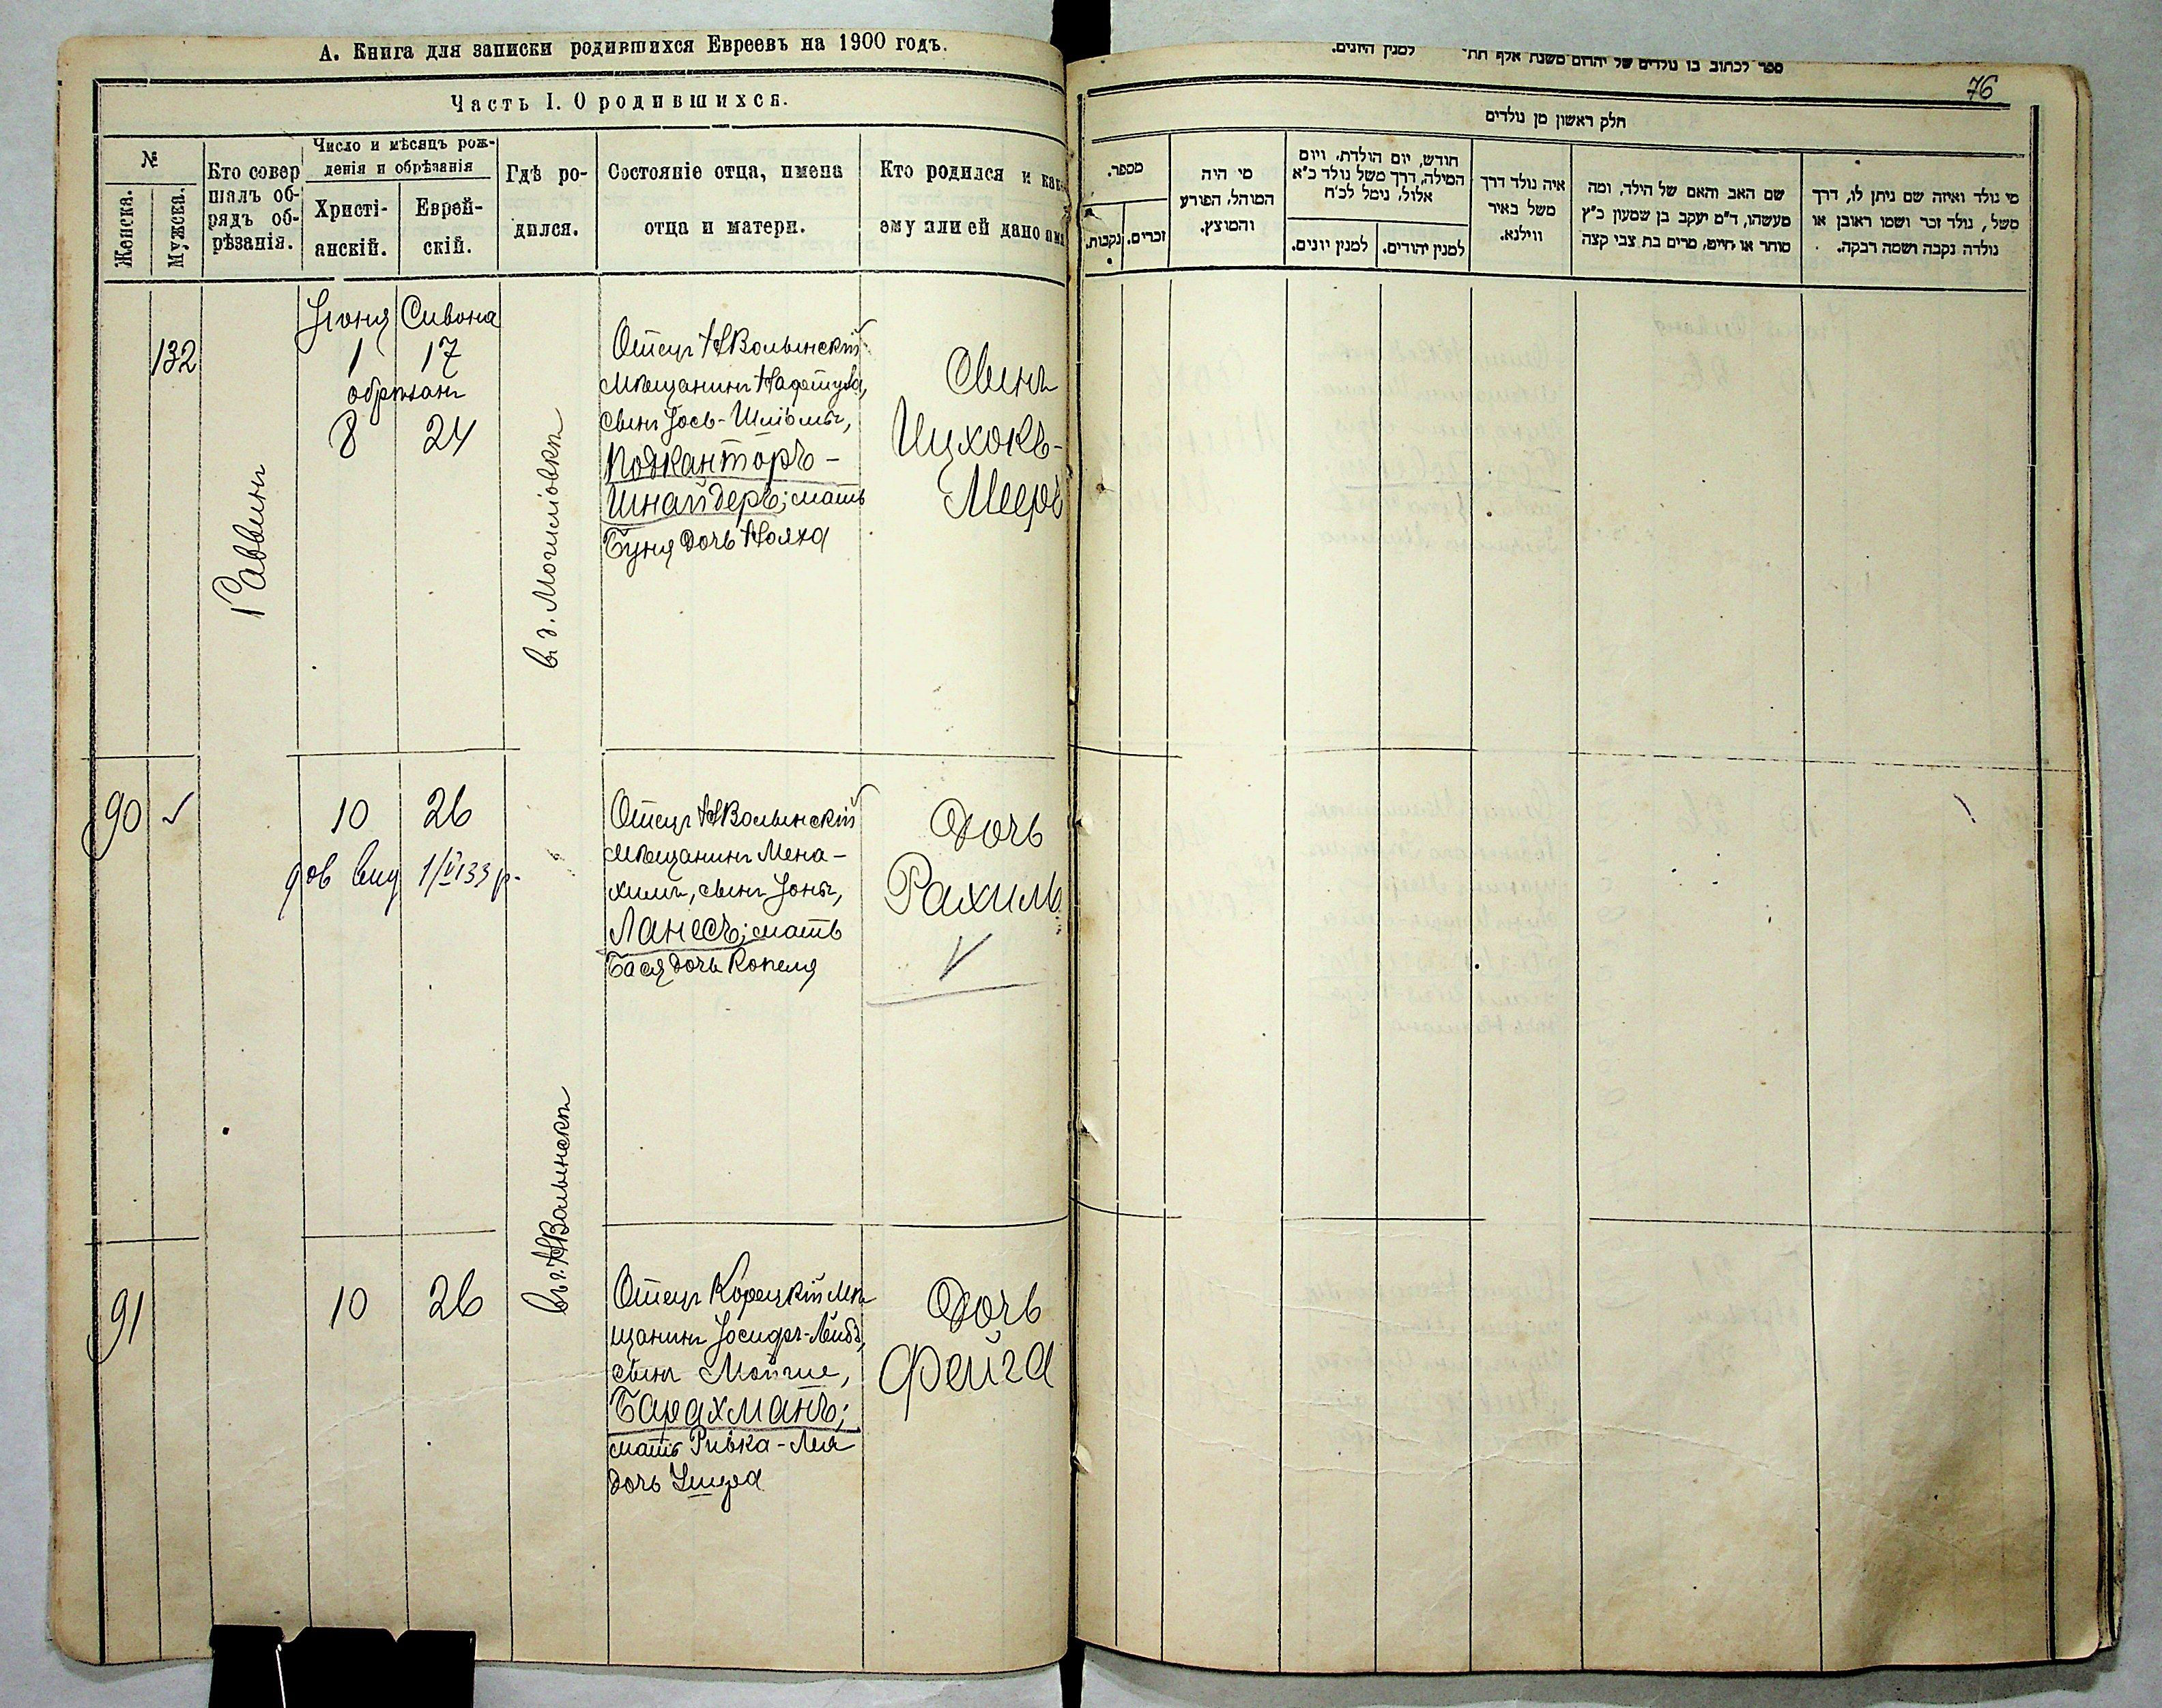 А. Книга для записки родившихся Евреевъ на 1900 годъ.
Часть I. О родившихся.
№
Женска.
Мужска.
Кто совер
шалъ об-
рядъ об-
рѣзанія.
Число и мѣсяцъ рож-
денія и обрѣзанія
Христі-
анскій.
Еврей-
скій.
Гдѣ ро-
дился.
Состояніе отца, имена
отца и матери.
Кто родился и как
ему или ей дано
132
Раввинъ
Іюня Сивона
1 17
обрѣзанъ
8 24
въ д. Могилювкѣ
Отецъ НВолынскій
мѣщанинъ Нафтула,
сынъ Іось-Шліомы,
Подканторъ-
Шнайдеръ; мать
Буня дочь Нояха
Сынъ
Ицхокъ-
Мееръ
90
10 26
дов вид 1/VI 33 р.
Отецъ НВолынскій
мѣщанинъ Мена-
химъ, сынъ Іоны,
Ланесъ; мать
Бася дочь Копеля
Дочь
Рахиль
91
10 26
въ г. НВолынскѣ
Отецъ Корецкій мѣ
щанинъ Іосифъ-Лейбъ,
сынъ Мойше,
Барахманъ;
мать Ривка-Лея
дочь Ушера
Дочь
Фейга
ספר לכתוב בו נולדים של יהודים משנת אלף תת׳ למנין היונים.
76
חלק ראשון מן נולדים
מי נולד ואיזה שם ניתן לו, דרך
משל, נולד זכר ושמו ראובן או
נולדה נקבה ושמה רבקה.
שם האב והאם של הילד, ומה
מעשהו, ד״מ יעקב בן שמעון כ״ץ
סוחר או חייט, מרים בת צבי קצה
איה נולד דרך
משל באיר
ווילנא.
חודש, יום הולדת, ויום
המילה, דרך משל נולד כ״א
אלול, נימל לכ״ח
למנין יהודים.
למנין יונים.
מי היה
המוהל, הפורע
והמוצץ.
מספר.
זכרים.
נקבות.